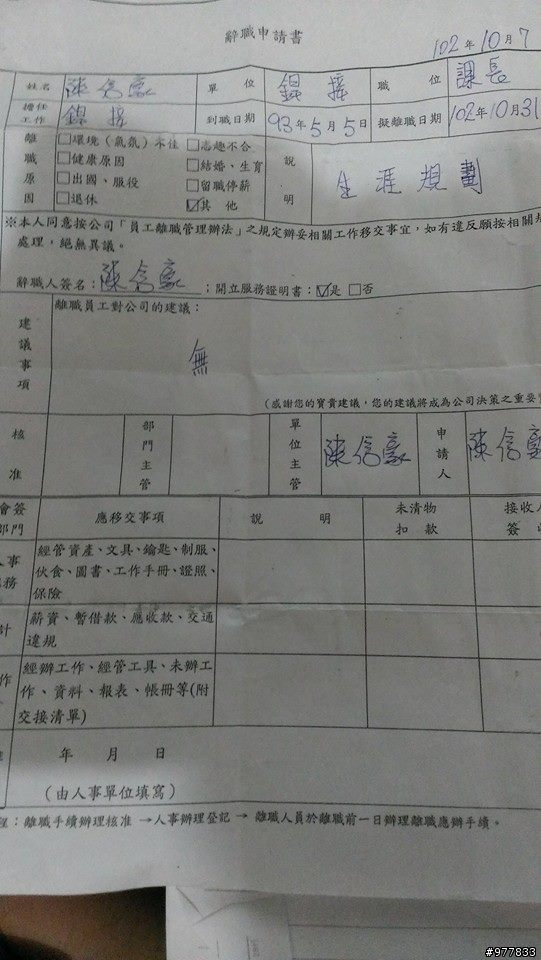 辭職申請書
102年10月7
姓名 陳信豪 單位 銲接 職位 課長
擔任工作 銲接 到職日期 93年5月5日 擬離職日期 102年10月31
離職原因
□環境（氣氛）不佳 □志趣不合
□健康原因 □結婚、生育
□出國、服役 □留職停薪
□退休 ☑其他
說明 生涯規劃
※本人同意按公司「員工離職管理辦法」之規定辦妥相關工作移交事宜，如有違反願按相關規
處理，絕無異議。
辭職人簽名：陳信豪；開立服務證明書：☑是 □否
建議事項
離職員工對公司的建議：
無
（感謝您的寶貴建議，您的建議將成為公司決策之重要
核准 部門主管 單位主管 陳信豪 申請人 陳信豪
會簽部門 應移交事項 說明 未清物扣款 接收人簽收
人事
務
經管資產、文具、鑰匙、制服、
伙食、圖書、工作手冊、證照、
保險
計
薪資、暫借款、應收款、交通
違規
作
經辦工作、經管工具、未辦工
作、資料、報表、帳冊等(附
交接清單)
年 月 日
（由人事單位填寫）
程：離職手續辦理核准 →人事辦理登記 → 離職人員於離職前一日辦理離職應辦手續。
#977833